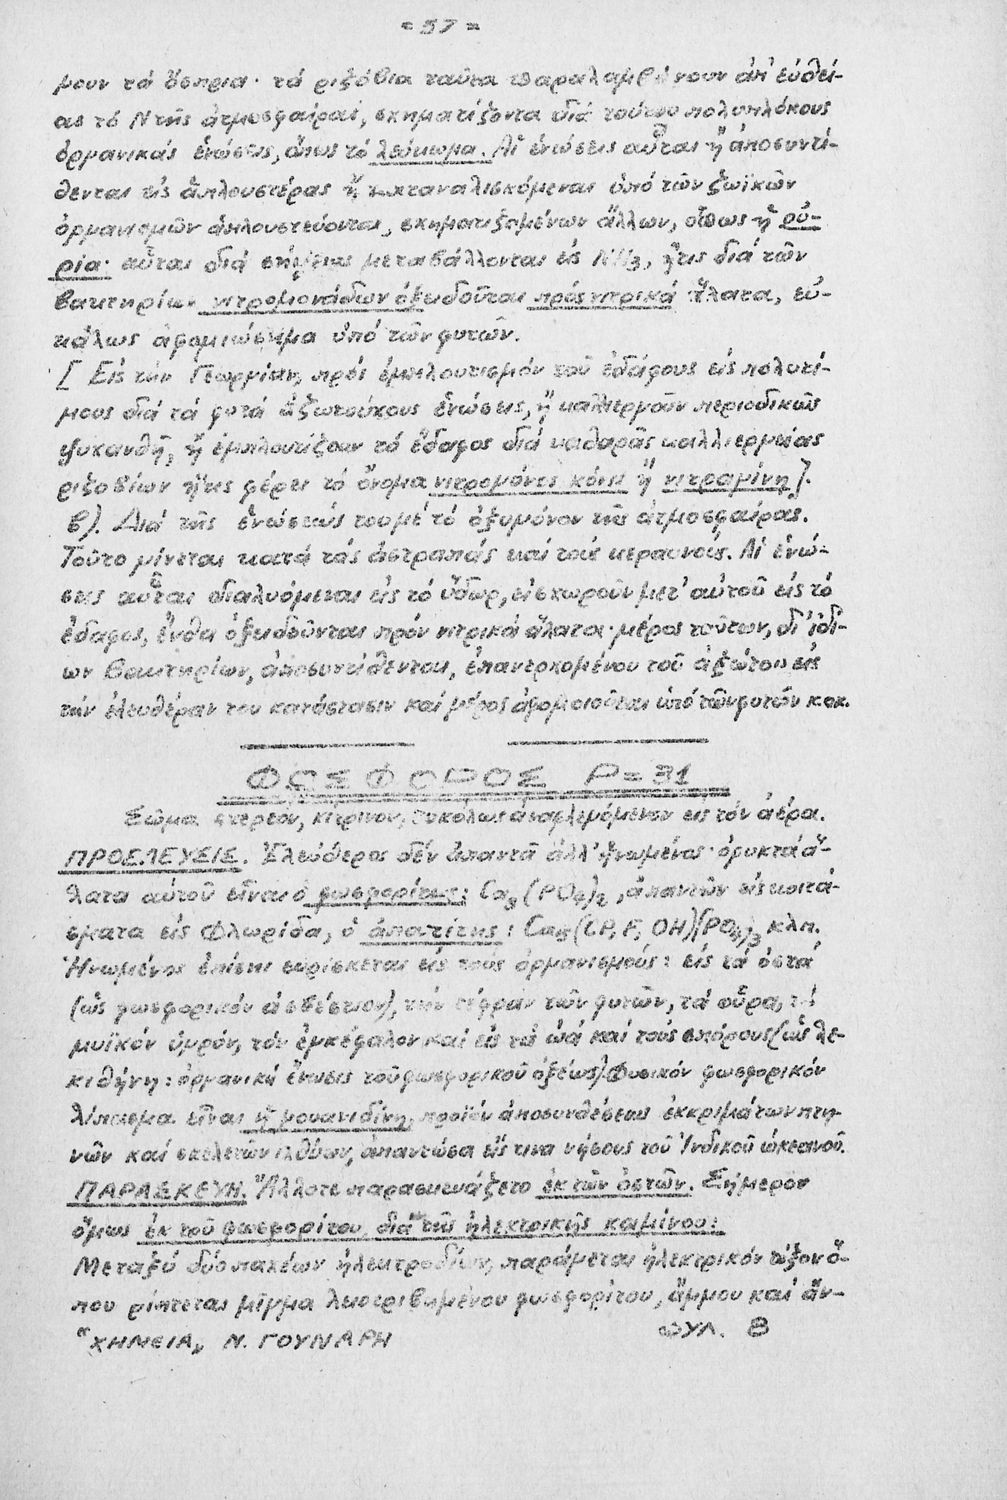 = 57 =
μουν τά ὄσπρια· τά ριζόβια ταῦτα παραλαμβάνουν ἀπ' εὐθεί-
ας τό Ν τῆς ἀτμοσφαίρας, σχηματίζοντα διά τούτου πολυπλόκους
ὀργανικάς ἑνώσεις, ὅπως τό λεύκωμα. Αἱ ἑνώσεις αὗται ἤ ἀποσυντί-
θενται εἰς ἁπλουστέρας ἤ καταναλισκόμεναι ὑπό τῶν ζωϊκῶν
ὀργανισμῶν ἁπλουστεύονται, σχηματιζομένων ἄλλων, οἵως ἡ οὐ-
ρία· αὗται διά σήψεως μεταβάλλονται εἰς NH3, ἥτις διά τῶν
βακτηρίων νιτρομονάδων ὀξειδοῦται πρός νιτρικά ἅλατα, εὐ-
κόλως ἀφομιώσιμα ὑπό τῶν φυτῶν.
[ Εἰς τήν Γεωργίαν, πρός ἐμπλουτισμόν τοῦ ἐδάφους εἰς πολυτί-
μους διά τά φυτά ἀζωτούχους ἑνώσεις, ἤ καλλιεργοῦν περιοδικῶς
ψυχανθῆ, ἤ ἐμπλουτίζουν τό ἔδαφος διά καθαρᾶς καλλιεργείας
ριζοβίων ἥτις φέρει τό ὄνομα νιτρομόνος κόνι ἤ νιτραμίνη].
β). Διά τῆς ἑνώσεώς του μέ τό ὀξυγόνον τῆς ἀτμοσφαίρας.
Τοῦτο γίνεται κατά τάς ἀστραπάς καί τούς κεραυνούς. Αἱ ἑνώ-
σεις αὗται διαλυόμεναι εἰς τό ὕδωρ, εἰσχωροῦν μετ' αὐτοῦ εἰς τό
ἔδαφος, ἔνθα ὀξειδοῦνται πρόν νιτρικά ἅλατα· μέρος τούτων, δι' ἰδί-
ων βακτηρίων, ἀποσυντίθενται, ἐπανερχομένου τοῦ ἀζώτου εἰς
τήν ἐλευθέραν του κατάστασιν καί μέρος ἀφομοιοῦται ὑπό τῶν φυτῶν κ.ο.κ.
ΦΩΣΦΟΡΟΣ P = 31
Σῶμα στερεόν, κίτρινον, εὐκόλως ἀναφλεγόμενον εἰς τόν ἀέρα.
ΠΡΟΕΛΕΥΣΙΣ. Ἐλεύθερος δέν ἀπαντᾶ ἀλλ' ἡνωμένος· ὀρυκτά ἅ-
λατα αὐτοῦ εἶναι ὁ φωσφορίτης: Ca3(PO4)2, ἀπαντῶν εἰς κοιτά-
σματα εἰς Φλωρίδα, ὁ ἀπατίτης: Ca5(Cl, F, OH)(PO4)3 κλπ.
Ἡνωμένος ἐπίσης εὑρίσκεται εἰς τούς ὀργανισμούς: εἰς τά ὀστᾶ
(ὡς φωσφορικόν ἀσβέστιον), τήν τέφραν τῶν φυτῶν, τά οὖρα, τό
μυϊκόν ὑγρόν, τόν ἐγκέφαλον καί εἰς τά ὠά καί τούς σπόρους (ὡς λε-
κιθίνη: ὀργανική ἕνωσις τοῦ φωσφορικοῦ ὀξέως). Φυσικόν φωσφορικόν
λίπασμα εἶναι ἡ γουανιδίνη, προϊόν ἀποσυνθέσεως ἐκκριμάτων πτη-
νῶν καί σκελετῶν ἰχθύων, ἀπαντῶσα εἴς τινα νήσους τοῦ Ἰνδικοῦ ὠκεανοῦ.
ΠΑΡΑΣΚΕΥΗ. Ἄλλοτε παρασκευάζετο ἐκ τῶν ὀστῶν. Σήμερον
ὅμως ἐκ τοῦ φωσφορίτου διά τῆς ἠλεκτρικῆς καμίνου:
Μεταξύ δύο παχέων ἠλεκτροδίων παράγεται ἠλεκτρικόν τόξον ὅ-
που ρίπτεται μῖγμα λειοτριβημένου φωσφορίτου, ἄμμου καί ἄν-
"ΧΗΜΕΙΑ„ Ν. ΓΟΥΝΑΡΗ ΦΥΛ. 8